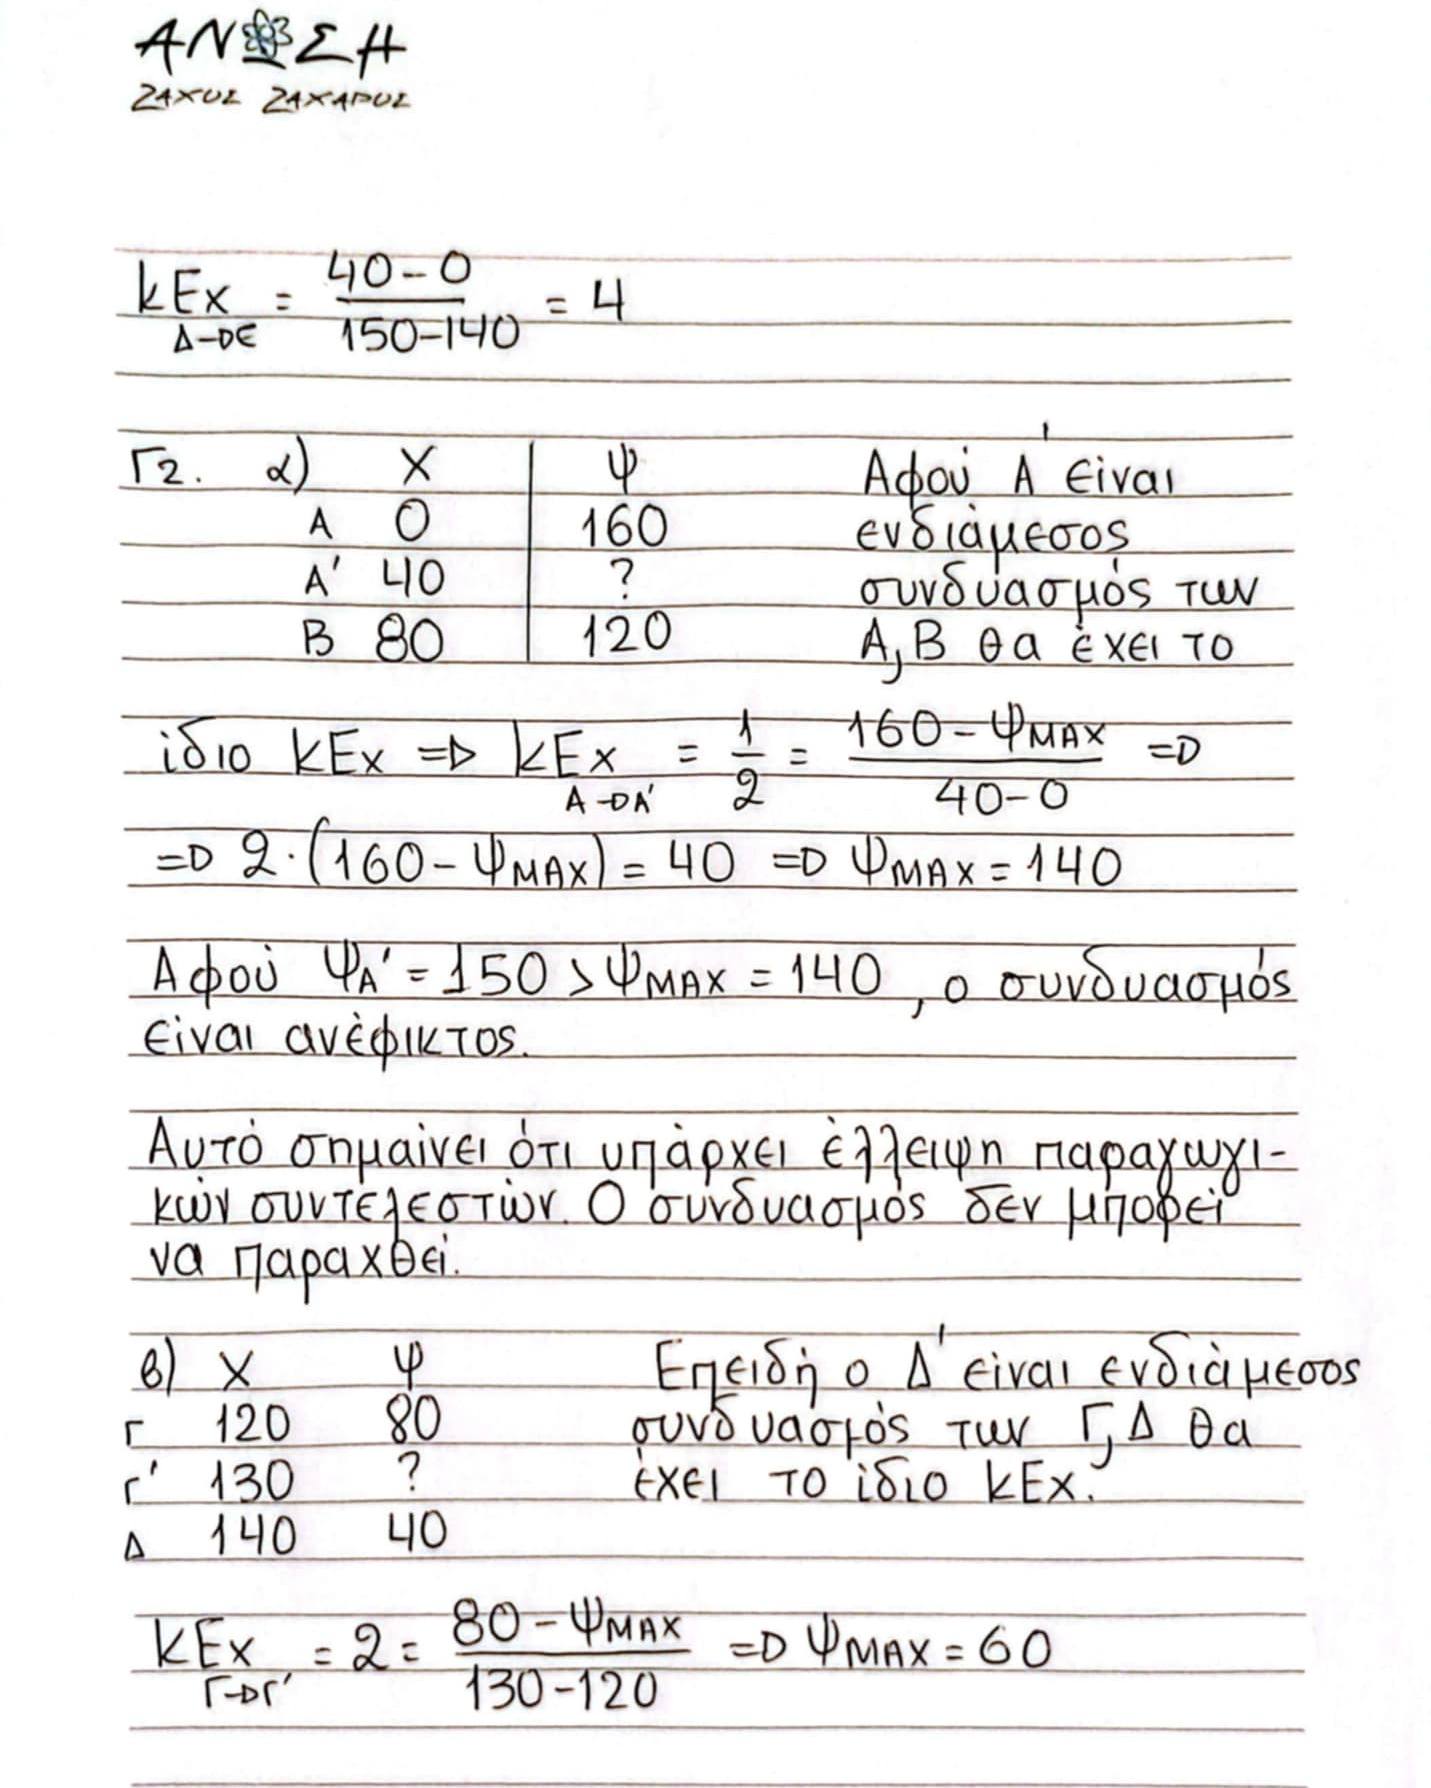 ΑΝΩΣΗ
ΖΑΧΟΣ ΖΑΧΑΡΟΣ
KEx Δ→Ε = 40-0 / 150-140 = 4
Γ2. α) Χ Ψ Αφού Α' είναι
Α 0 160 ενδιάμεσος
Α' 40 ? συνδυασμός των
Β 80 120 Α, Β θα έχει το
ίδιο KEx ⇒ KEx Α→Α' = 1/2 = 160-ΨMAX / 40-0 ⇒
⇒ 2·(160-ΨMAX) = 40 ⇒ ΨMAX = 140
Αφού ΨΑ' = 150 > ΨMAX = 140, ο συνδυασμός
είναι ανέφικτος.
Αυτό σημαίνει ότι υπάρχει έλλειψη παραγωγι-
κών συντελεστών. Ο συνδυασμός δεν μπορεί
να παραχθεί.
β) Χ Ψ Επειδή ο Δ' είναι ενδιάμεσος
Γ 120 80 συνδυασμός των Γ, Δ θα
Γ' 130 ? έχει το ίδιο KEx.
Δ 140 40
KEx Γ→Γ' = 2 = 80-ΨMAX / 130-120 ⇒ ΨMAX = 60